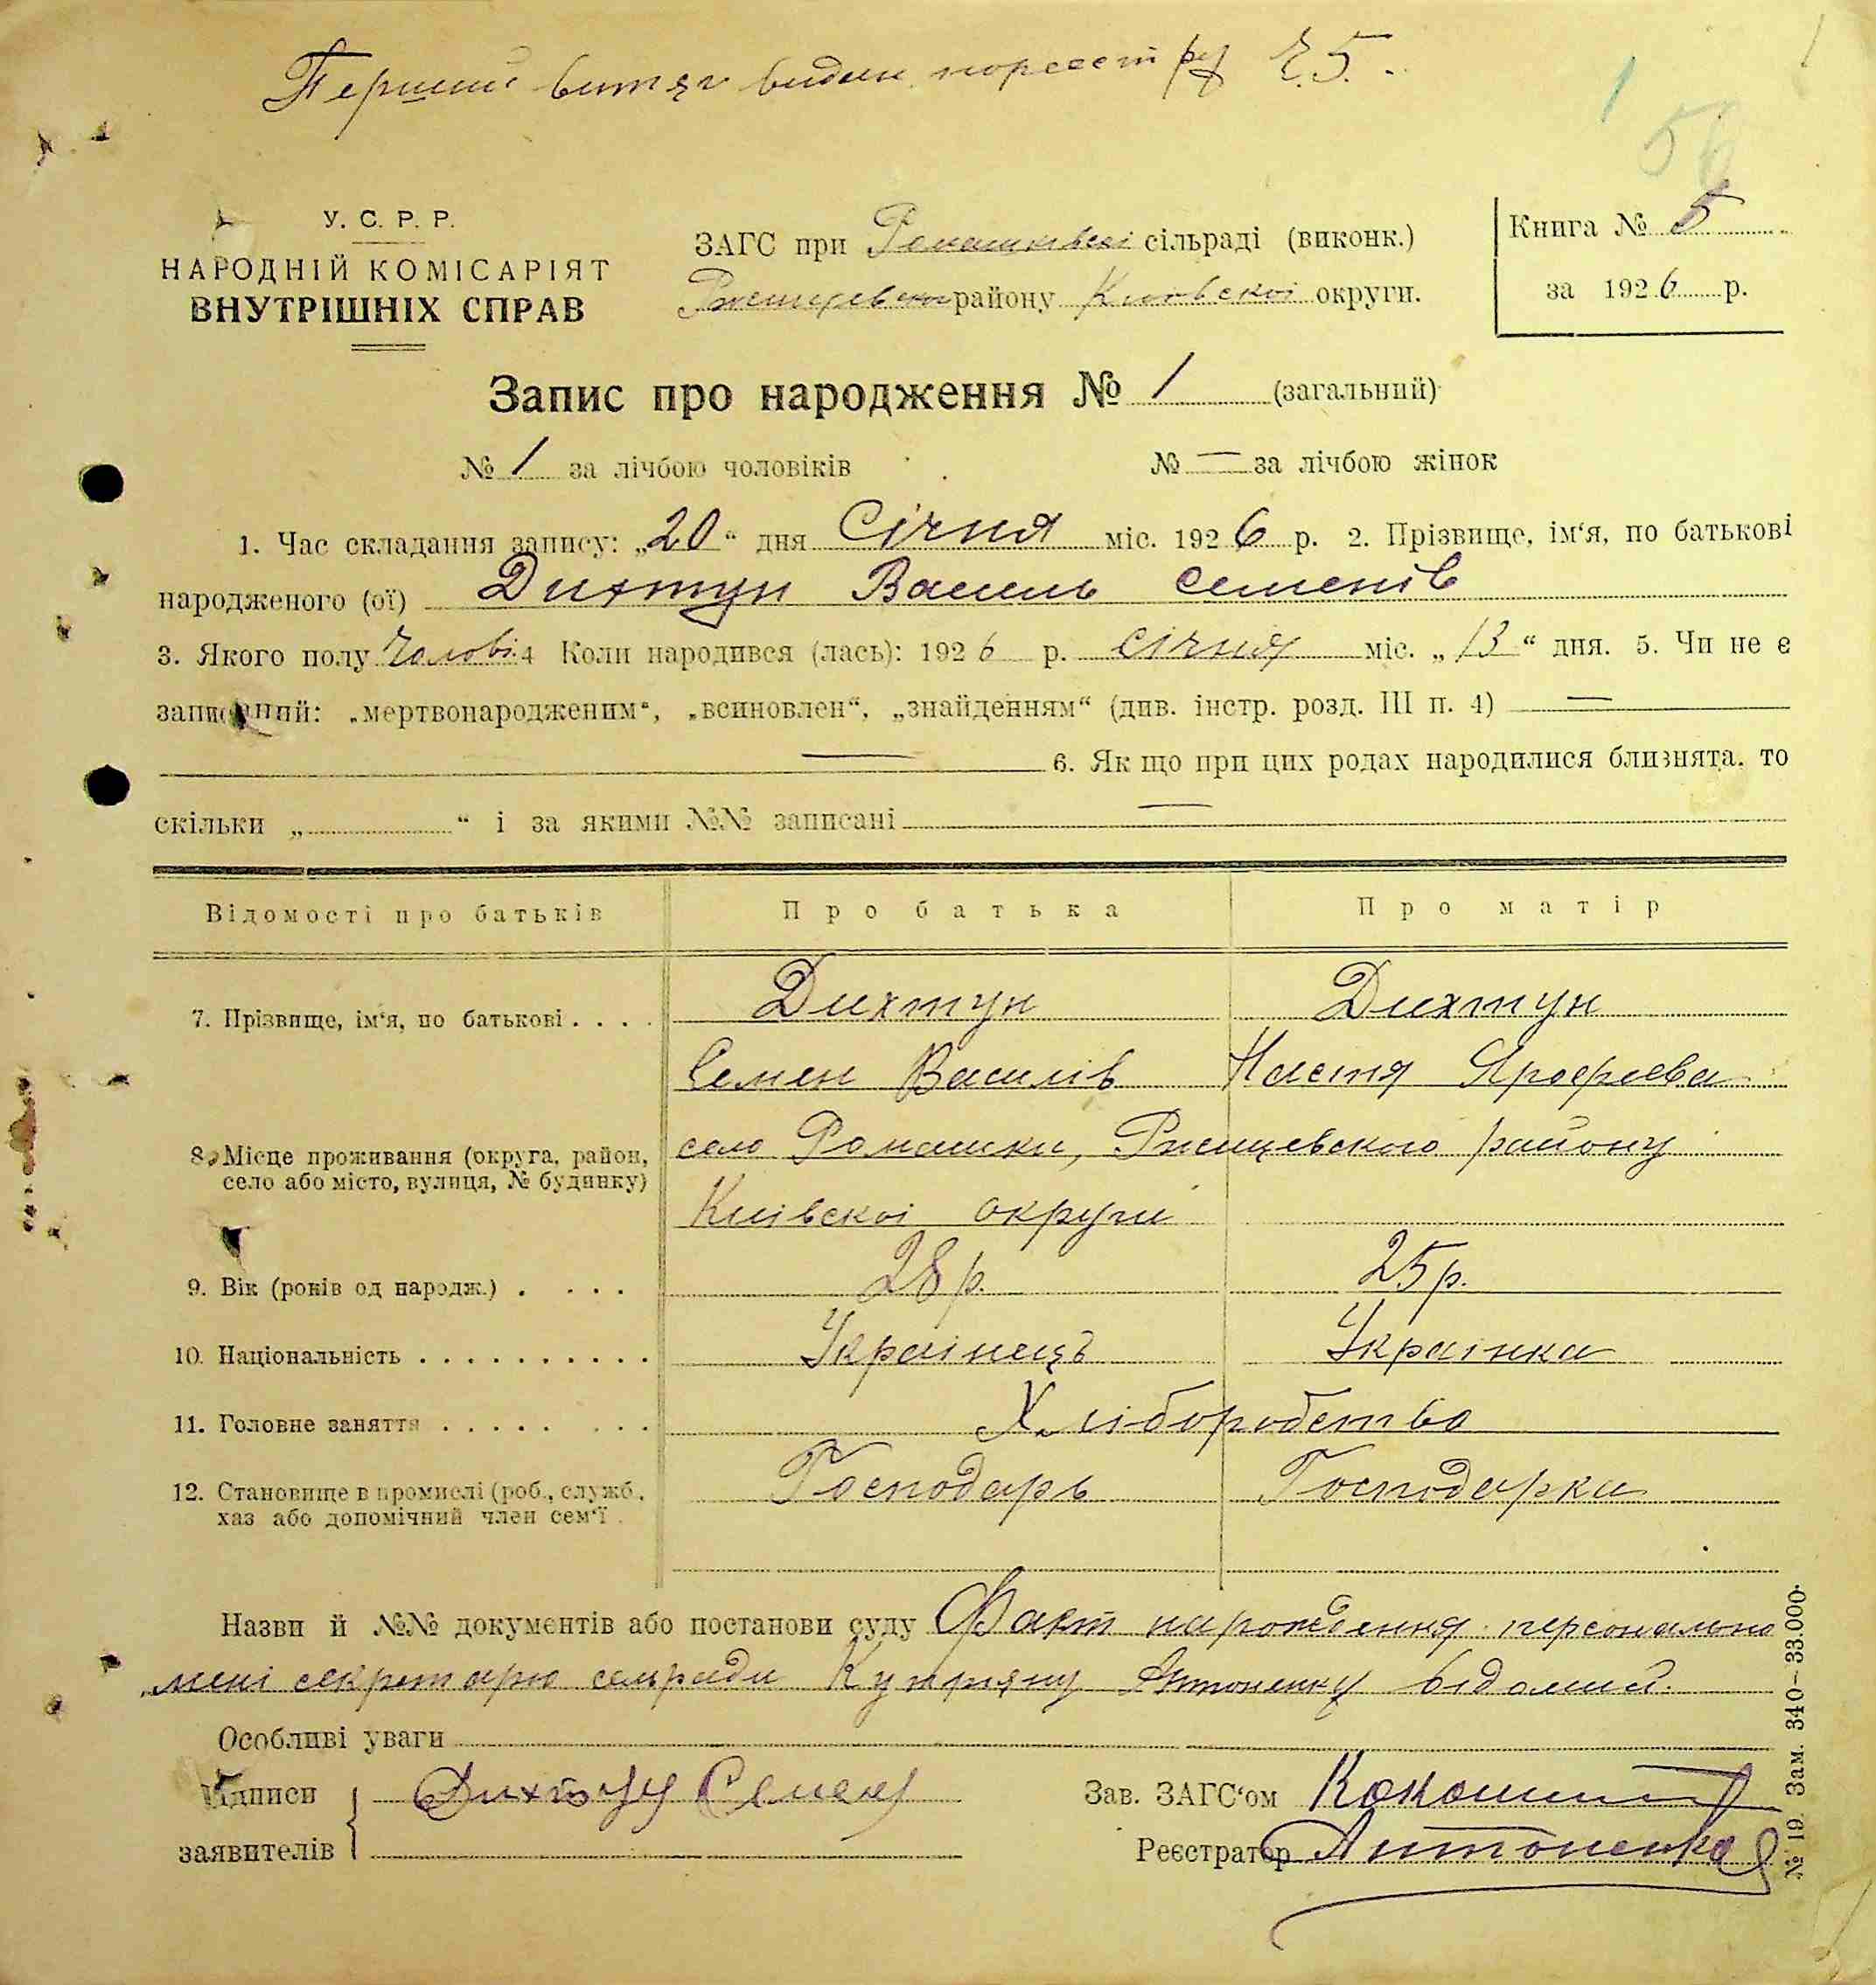 Перший витяг видан по реєстру Ч. 5.
1
56
У. С. Р. Р.
НАРОДНІЙ КОМІСАРІЯТ
ВНУТРІШНІХ СПРАВ
ЗАГС при Ромашківскі сільраді (виконк.)
Ржищевском району Київскоі округи.
Книга № 5
за 1926 р.
Запис про народження № 1 (загальний)
№ 1 за лічбою чоловіків № — за лічбою жінок
1. Час складання запису: „20“ дня Січня міс. 1926 р. 2. Прізвище, ім‘я, по батькові
народженого (ої) Дихтун Василь Семенів
3. Якого полу Чолові. 4 Коли народився (лась): 1926 р. січня міс. „13“ дня. 5. Чи не є
записаний: „мертвонародженим“, „всиновлен“, „знайденням“ (див. інстр. розд. III п. 4) —
— 6. Як що при цих родах народилися близнята, то
скільки „ “ і за якими №№ записані —
Відомості про батьків Про батька Про матір
7. Прізвище, ім‘я, по батькові . . . . Дихтун Дихтун
Семен Василів Настя Ярофеева
8. Місце проживання (округа, район, село Ромашки, Ржищевского району
село або місто, вулиця, № будинку)
Київскоі округи
9. Вік (років од народж.) . . . . 28 р. 25 р.
10. Національність . . . . . . . . . . Украінець Украінка
11. Головне заняття . . . . . . . . Хліборобство
12. Становище в промислі (роб., служб., Господарь Господарка
хаз або допомічний член сем‘ї .
Назви й №№ документів або постанови суду Факт народження персонально
мені секретарю сельради Купріяну Антоненку відомий.
Особливі уваги
Підписи Дихтун Семен Зав. ЗАГС‘ом
заявителів Реєстратор Антоненко
№ 19. Зам. 340–33.000.